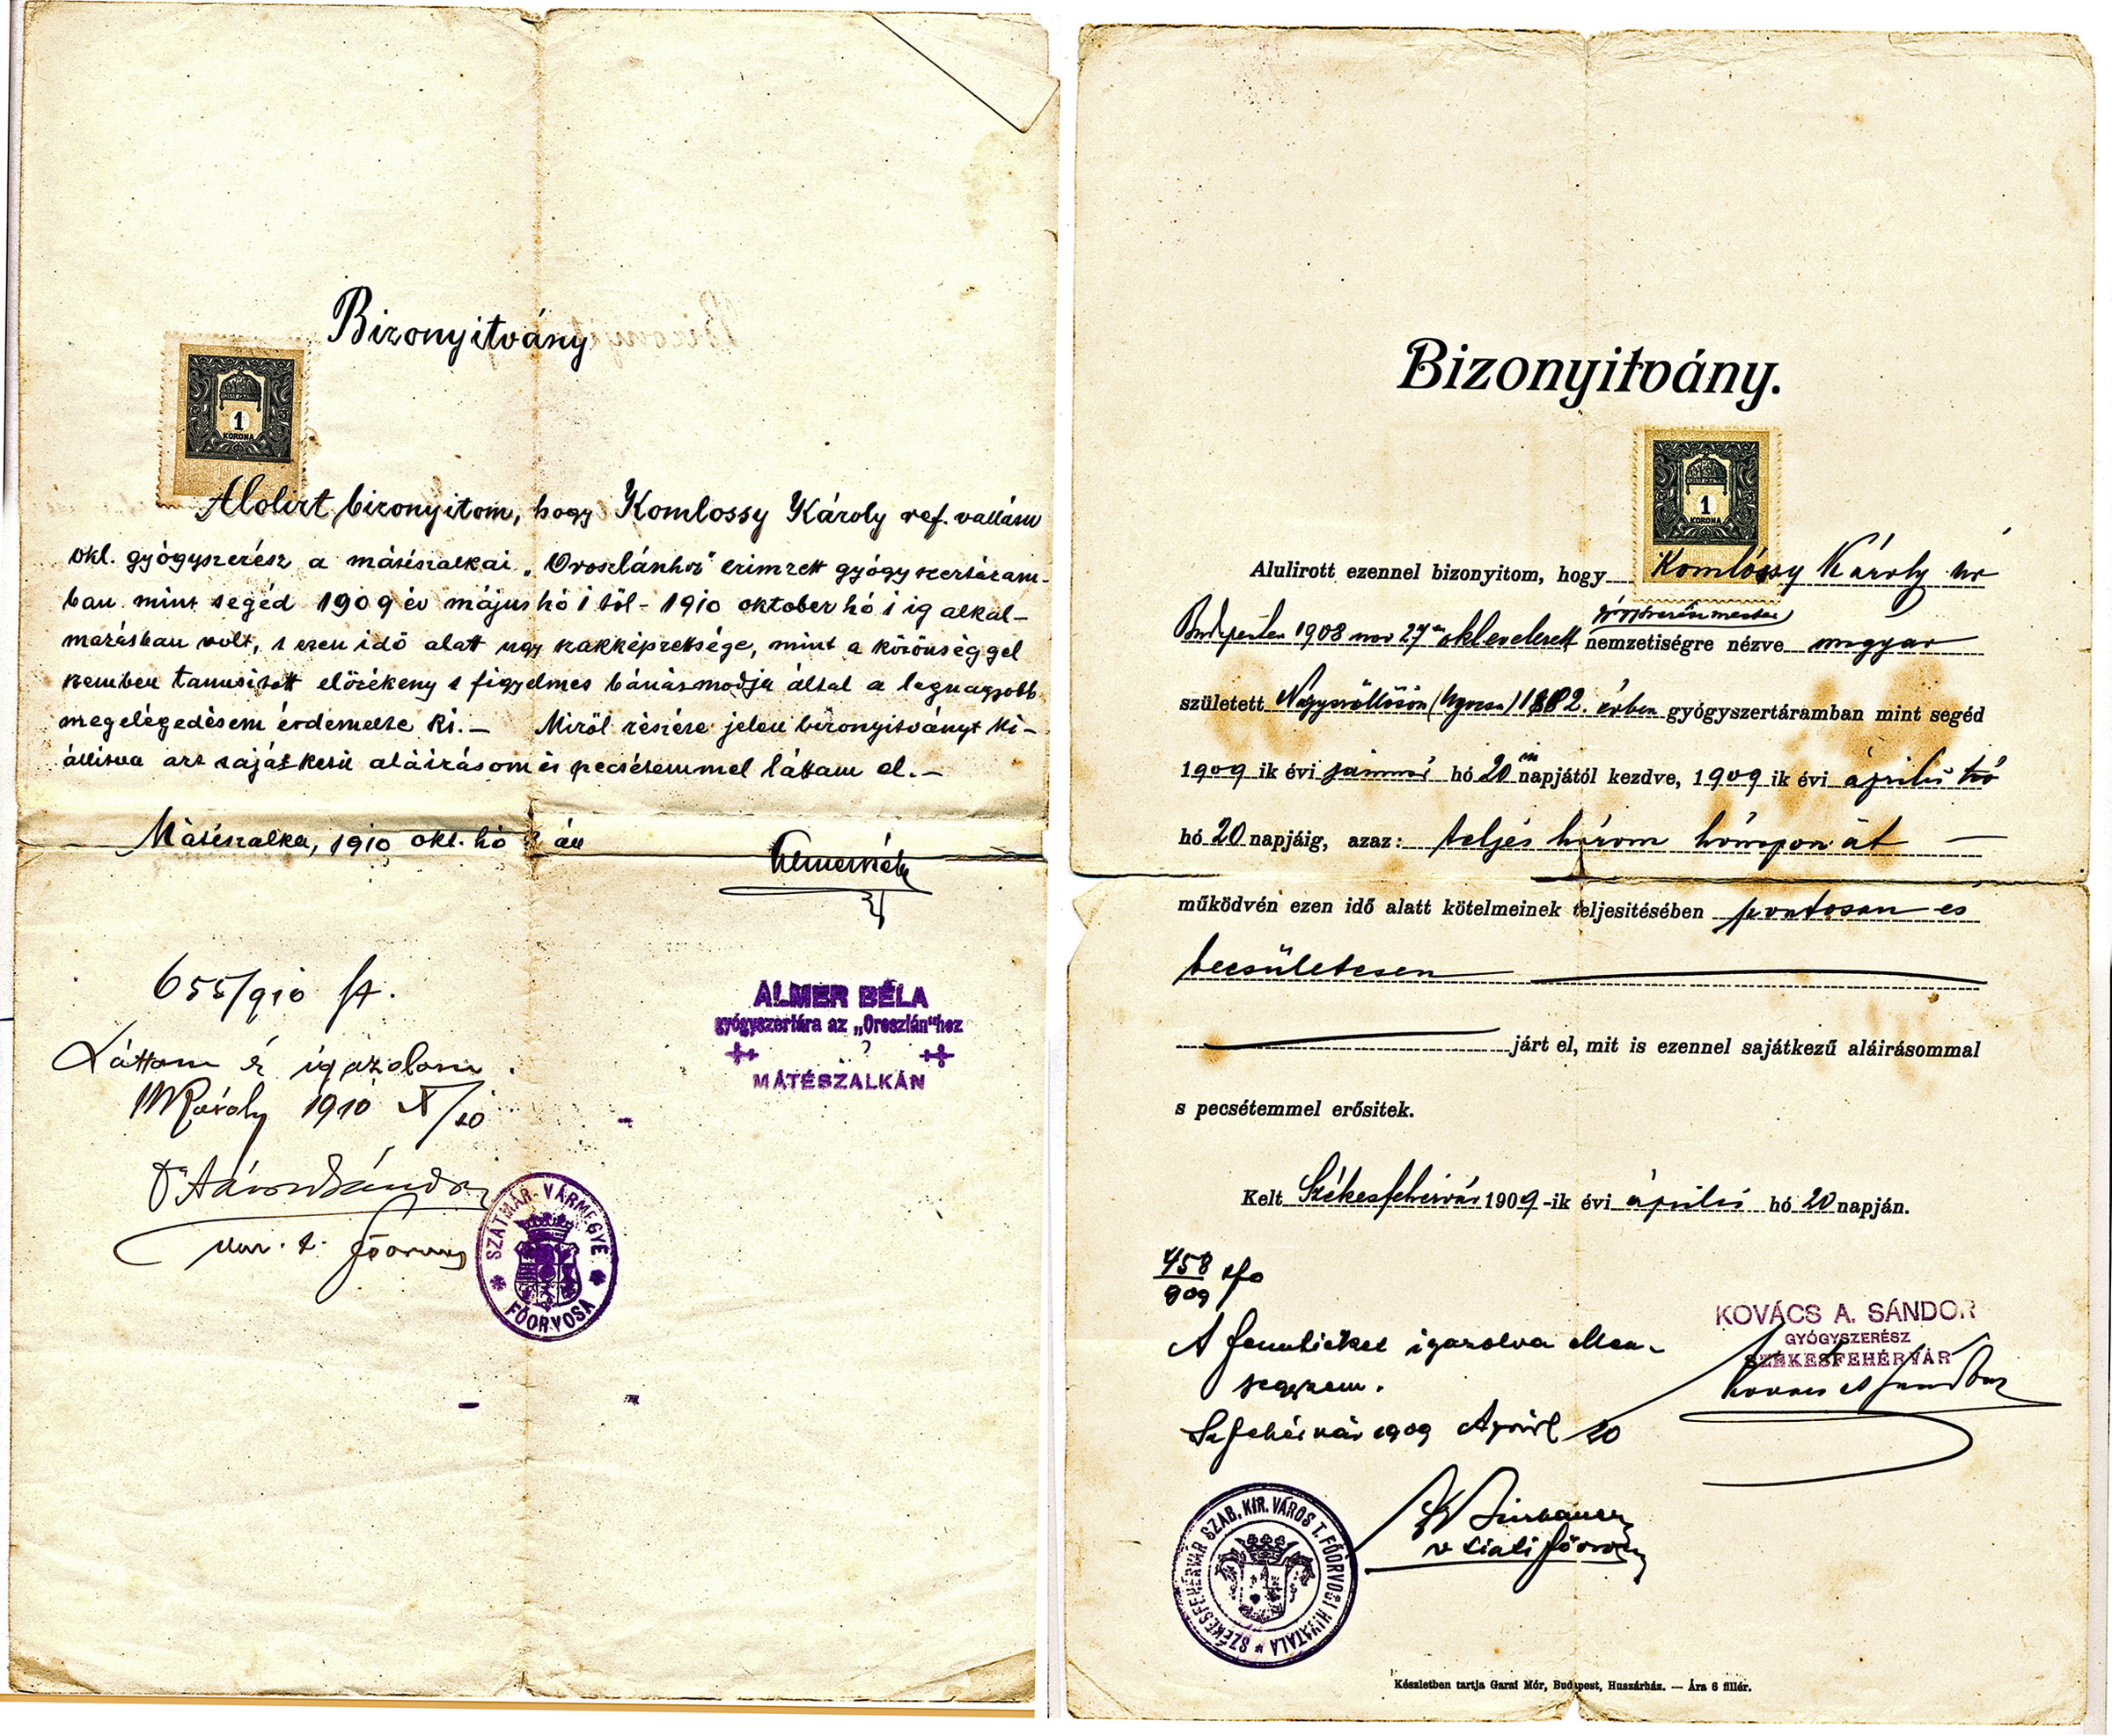 Bizonyitvány
1
KORONA
Alolirt bizonyitom, hogy Komlossy Károly ref. vallásu
okl. gyógyszerész a mátészalkai „Oroszlánhoz" czimzett gyógyszertáram-
ban mint segéd 1909 év május hó 1 től - 1910 oktober hó 1 ig alkal-
mazásban volt, s ezen idő alatt ugy szakképzettsége, mint a közönséggel
szemben tanusitott előzékeny s figyelmes bánásmodja által a legnagyobb
megelégedésem érdemelte ki. — Miről részére jelen bizonyitványt ki-
állitva azt saját kezü aláirásom és pecsétemmel láttam el. —
Mátészalka, 1910 okt. hó án
655/910
ALMER BÉLA
gyógyszertára az „Oroszlán"hoz
MÁTÉSZALKÁN
Láttam és igazolom.
NKároly 1910 X/10
Dr Aáron Sándor
főorvos
SZATMÁR-VÁRMEGYE
FŐORVOSA
Bizonyitvány.
1
KORONA
Alulirott ezennel bizonyitom, hogy Komlóssy Károly úr
gyógyszerészmester
Budapesten 1908 nov 27én oklevelezett nemzetiségre nézve magyar
született Nagyszöllősön (Ugocsa) 1882. évben gyógyszertáramban mint segéd
1909 ik évi január hó 20 napjától kezdve, 1909 ik évi április hó
hó 20 napjáig, azaz: teljes három hónapon át —
működvén ezen idő alatt kötelmeinek teljesitésében pontosan és
becsületesen
járt el, mit is ezennel sajátkezű aláirásommal
s pecsétemmel erősitek.
Kelt Székesfehérvár 1909-ik évi április hó 20 napján.
458
909
A fenntieket igazolva ellen-
jegyzem.
KOVÁCS A. SÁNDOR
GYÓGYSZERÉSZ
SZÉKESFEHÉRVÁR
Kovács A Sándor
Szfehérvár 1909 April 20
városi főorvos
SZÉKESFEHÉRVÁR SZAB. KIR. VÁROS T. FŐORVOSI HIVATALA
Készletben tartja Garai Mór, Budapest, Huszárház. — Ára 6 fillér.